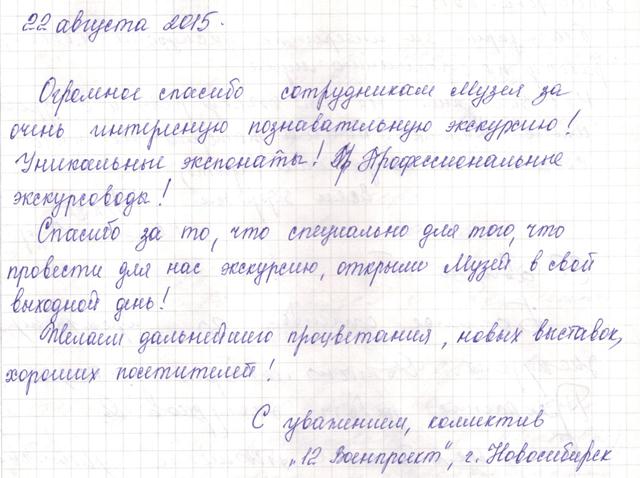 22 августа 2015.
Огромное спасибо сотрудникам Музея за
очень интересную познавательную экскурсию!
Уникальные экспонаты! Пр Профессиональные
экскурсоводы!
Спасибо за то, что специально для того, что
провести для нас экскурсию, открыли Музей в свой
выходной день!
Желаем дальнейшего процветания, новых выставок,
хороших посетителей!
С уважением, коллектив
„12 Военпроект", г. Новосибирск